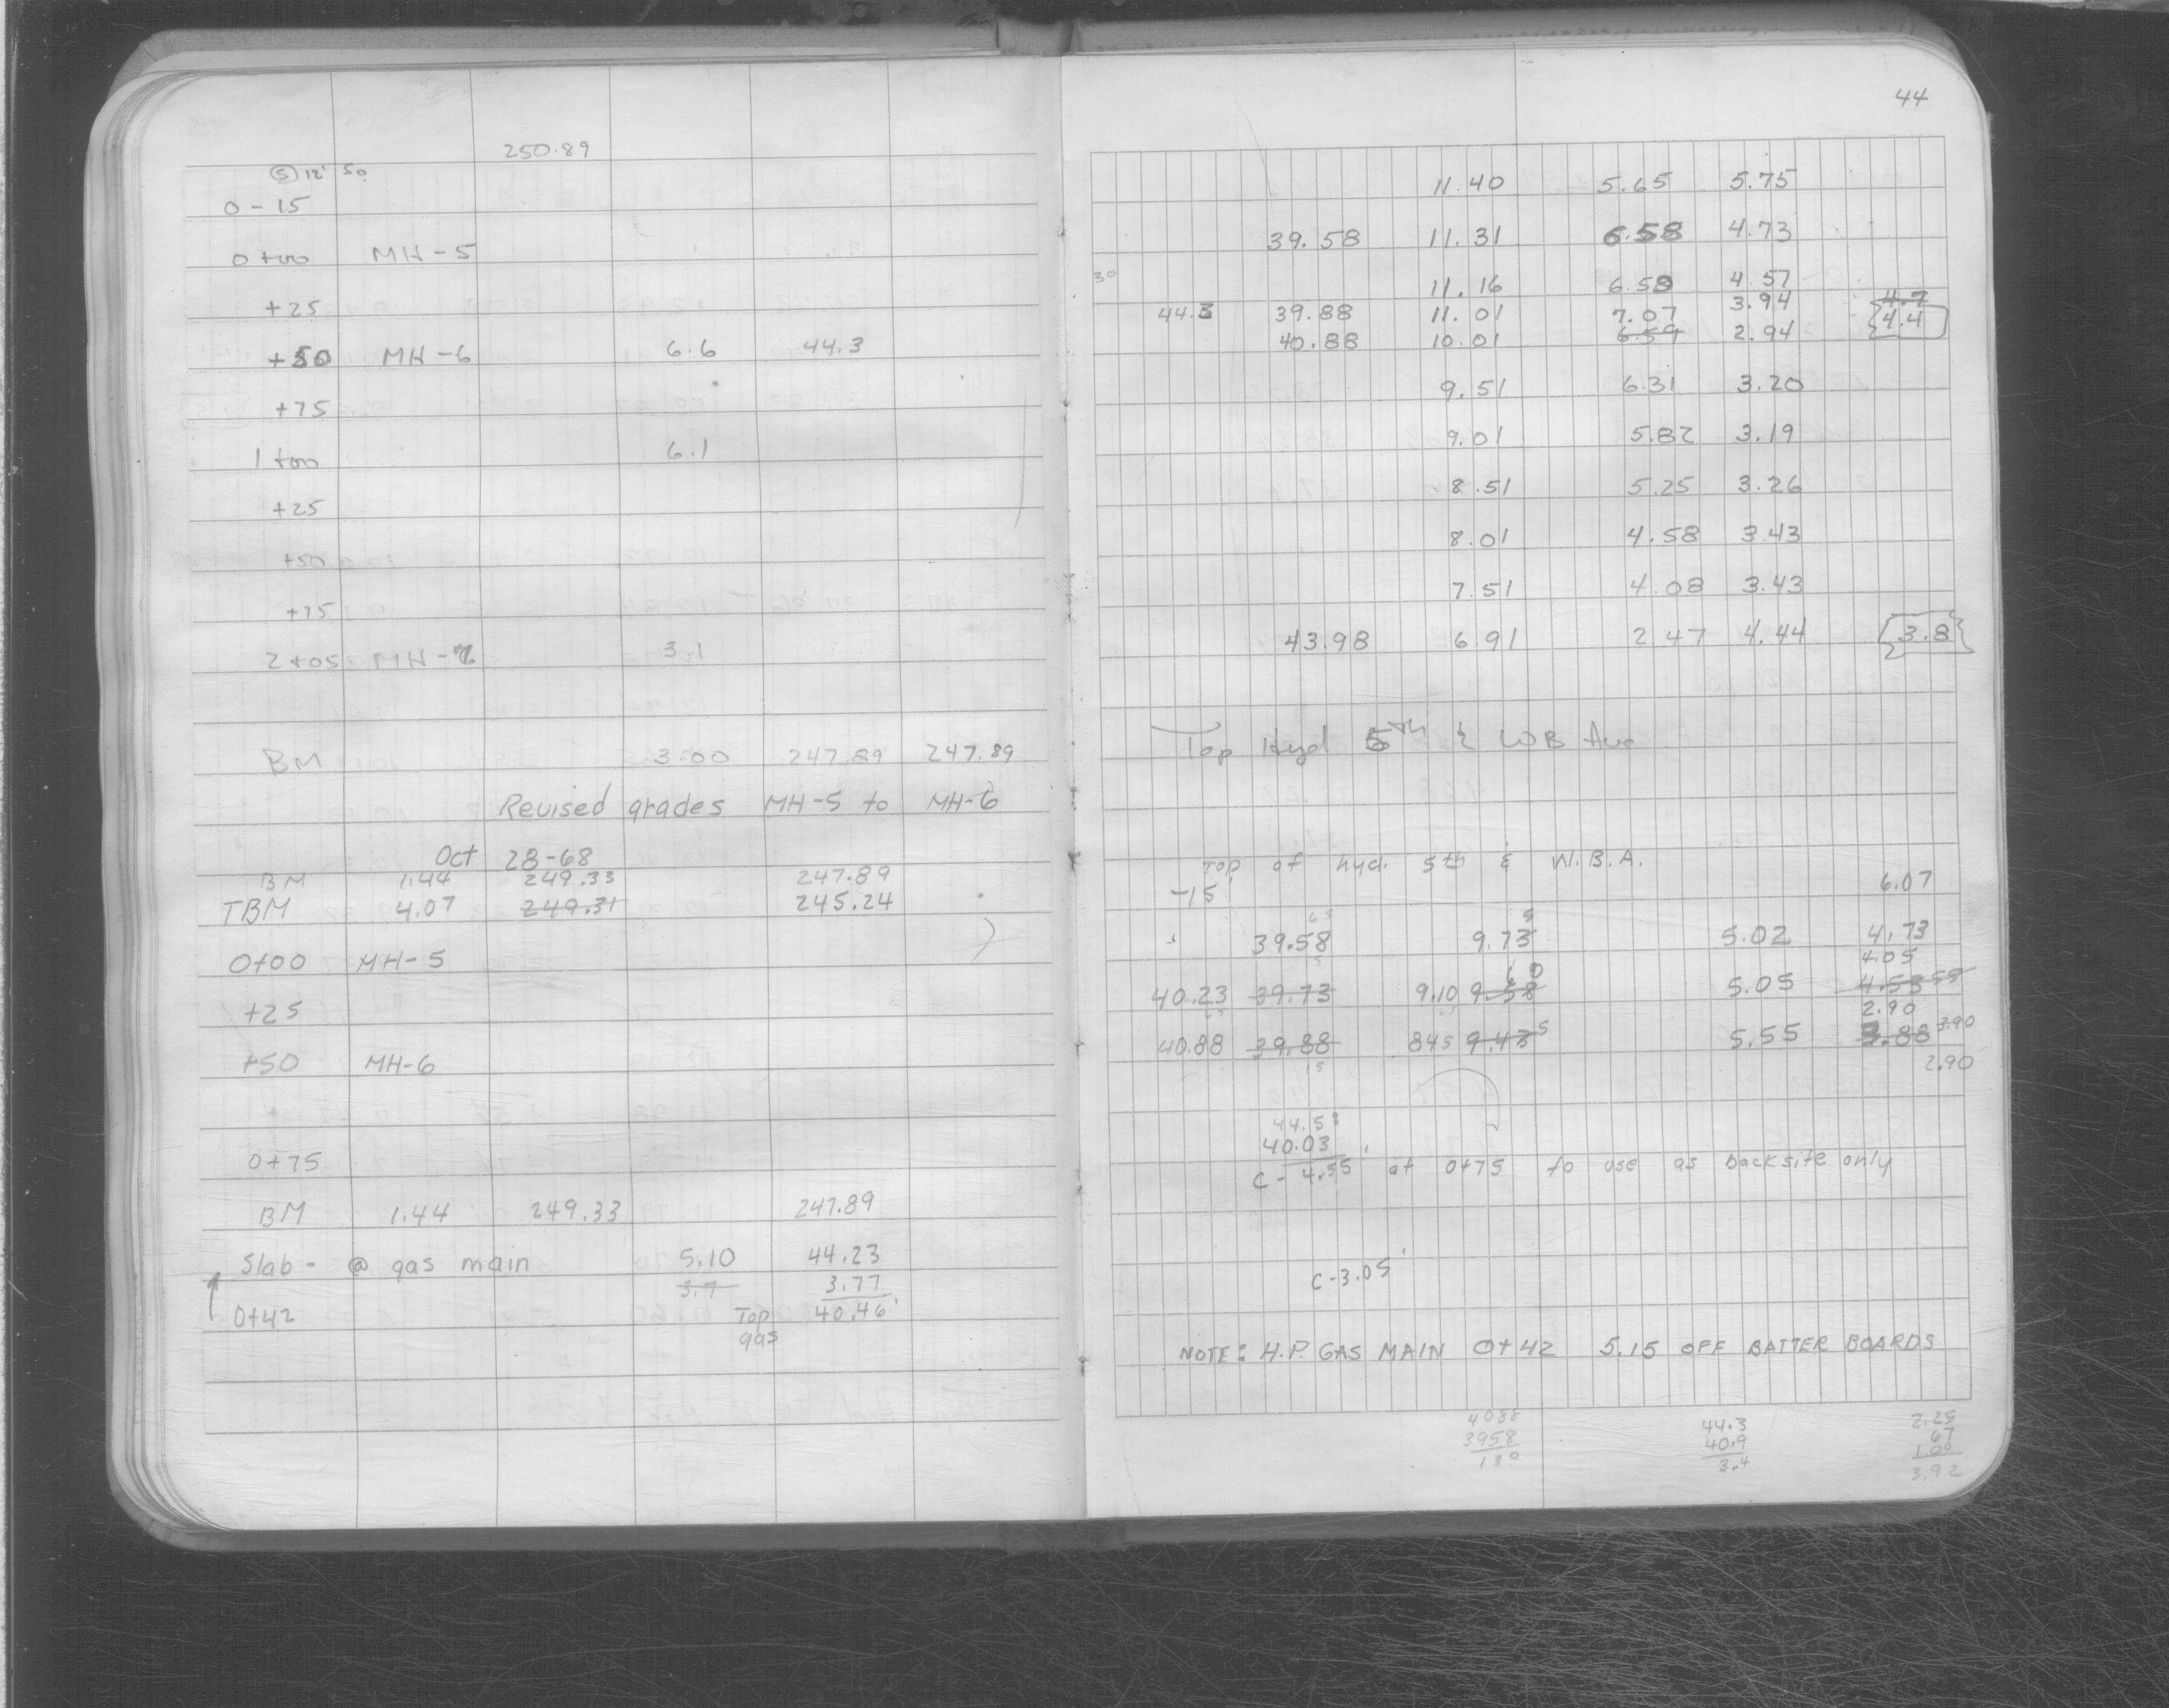 250.89
Ⓢ 12' So.
0-15
0+00 MH-5
+25
+50 MH-6 6.6 44.3
+75
1+00 6.1
+25
+50
+75
2+05 MH-7 3.1
BM 3.00 247.89 247.89
Revised grades MH-5 to MH-6
Oct 28-68
BM 1.44 249.33 247.89
TBM 4.07 249.31 245.24
0+00 MH-5
+25
+50 MH-6
0+75
BM 1.44 249.33 247.89
Slab - @ gas main 5.10 44.23
3.7 3.77
0+42 Top gas 40.46'
44
11.40 5.65 5.75
39.58 11.31 6.58 4.73
30
11.16 6.58 4.57
4.7
44.3 39.88 11.01 7.07 3.94 4.4
40.88 10.01 6.59 2.94
9.51 6.31 3.20
9.01 5.82 3.19
8.51 5.25 3.26
8.01 4.58 3.43
7.51 4.08 3.43
43.98 6.91 2.47 4.44 3.8
Top Hyd 5th & WB Ave
Top of hyd. 5th & W.B.A.
-15' 6.07
65 5
39.58 9.73 5.02 4.73
4.05
40.23 39.73 9.10 9.58 5.05 4.53 55
2.90
40.88 39.88 845 9.43 5 5.55 3.88 3.90
2.90
44.58
40.03
C- 4.55' at 0+75 to use as backsite only
C-3.05'
NOTE: H.P. GAS MAIN 0+42 5.15 OFF BATTER BOARDS
4088 44.3 2.25
3958 40.9 67
130 3.4 1.00
3.92